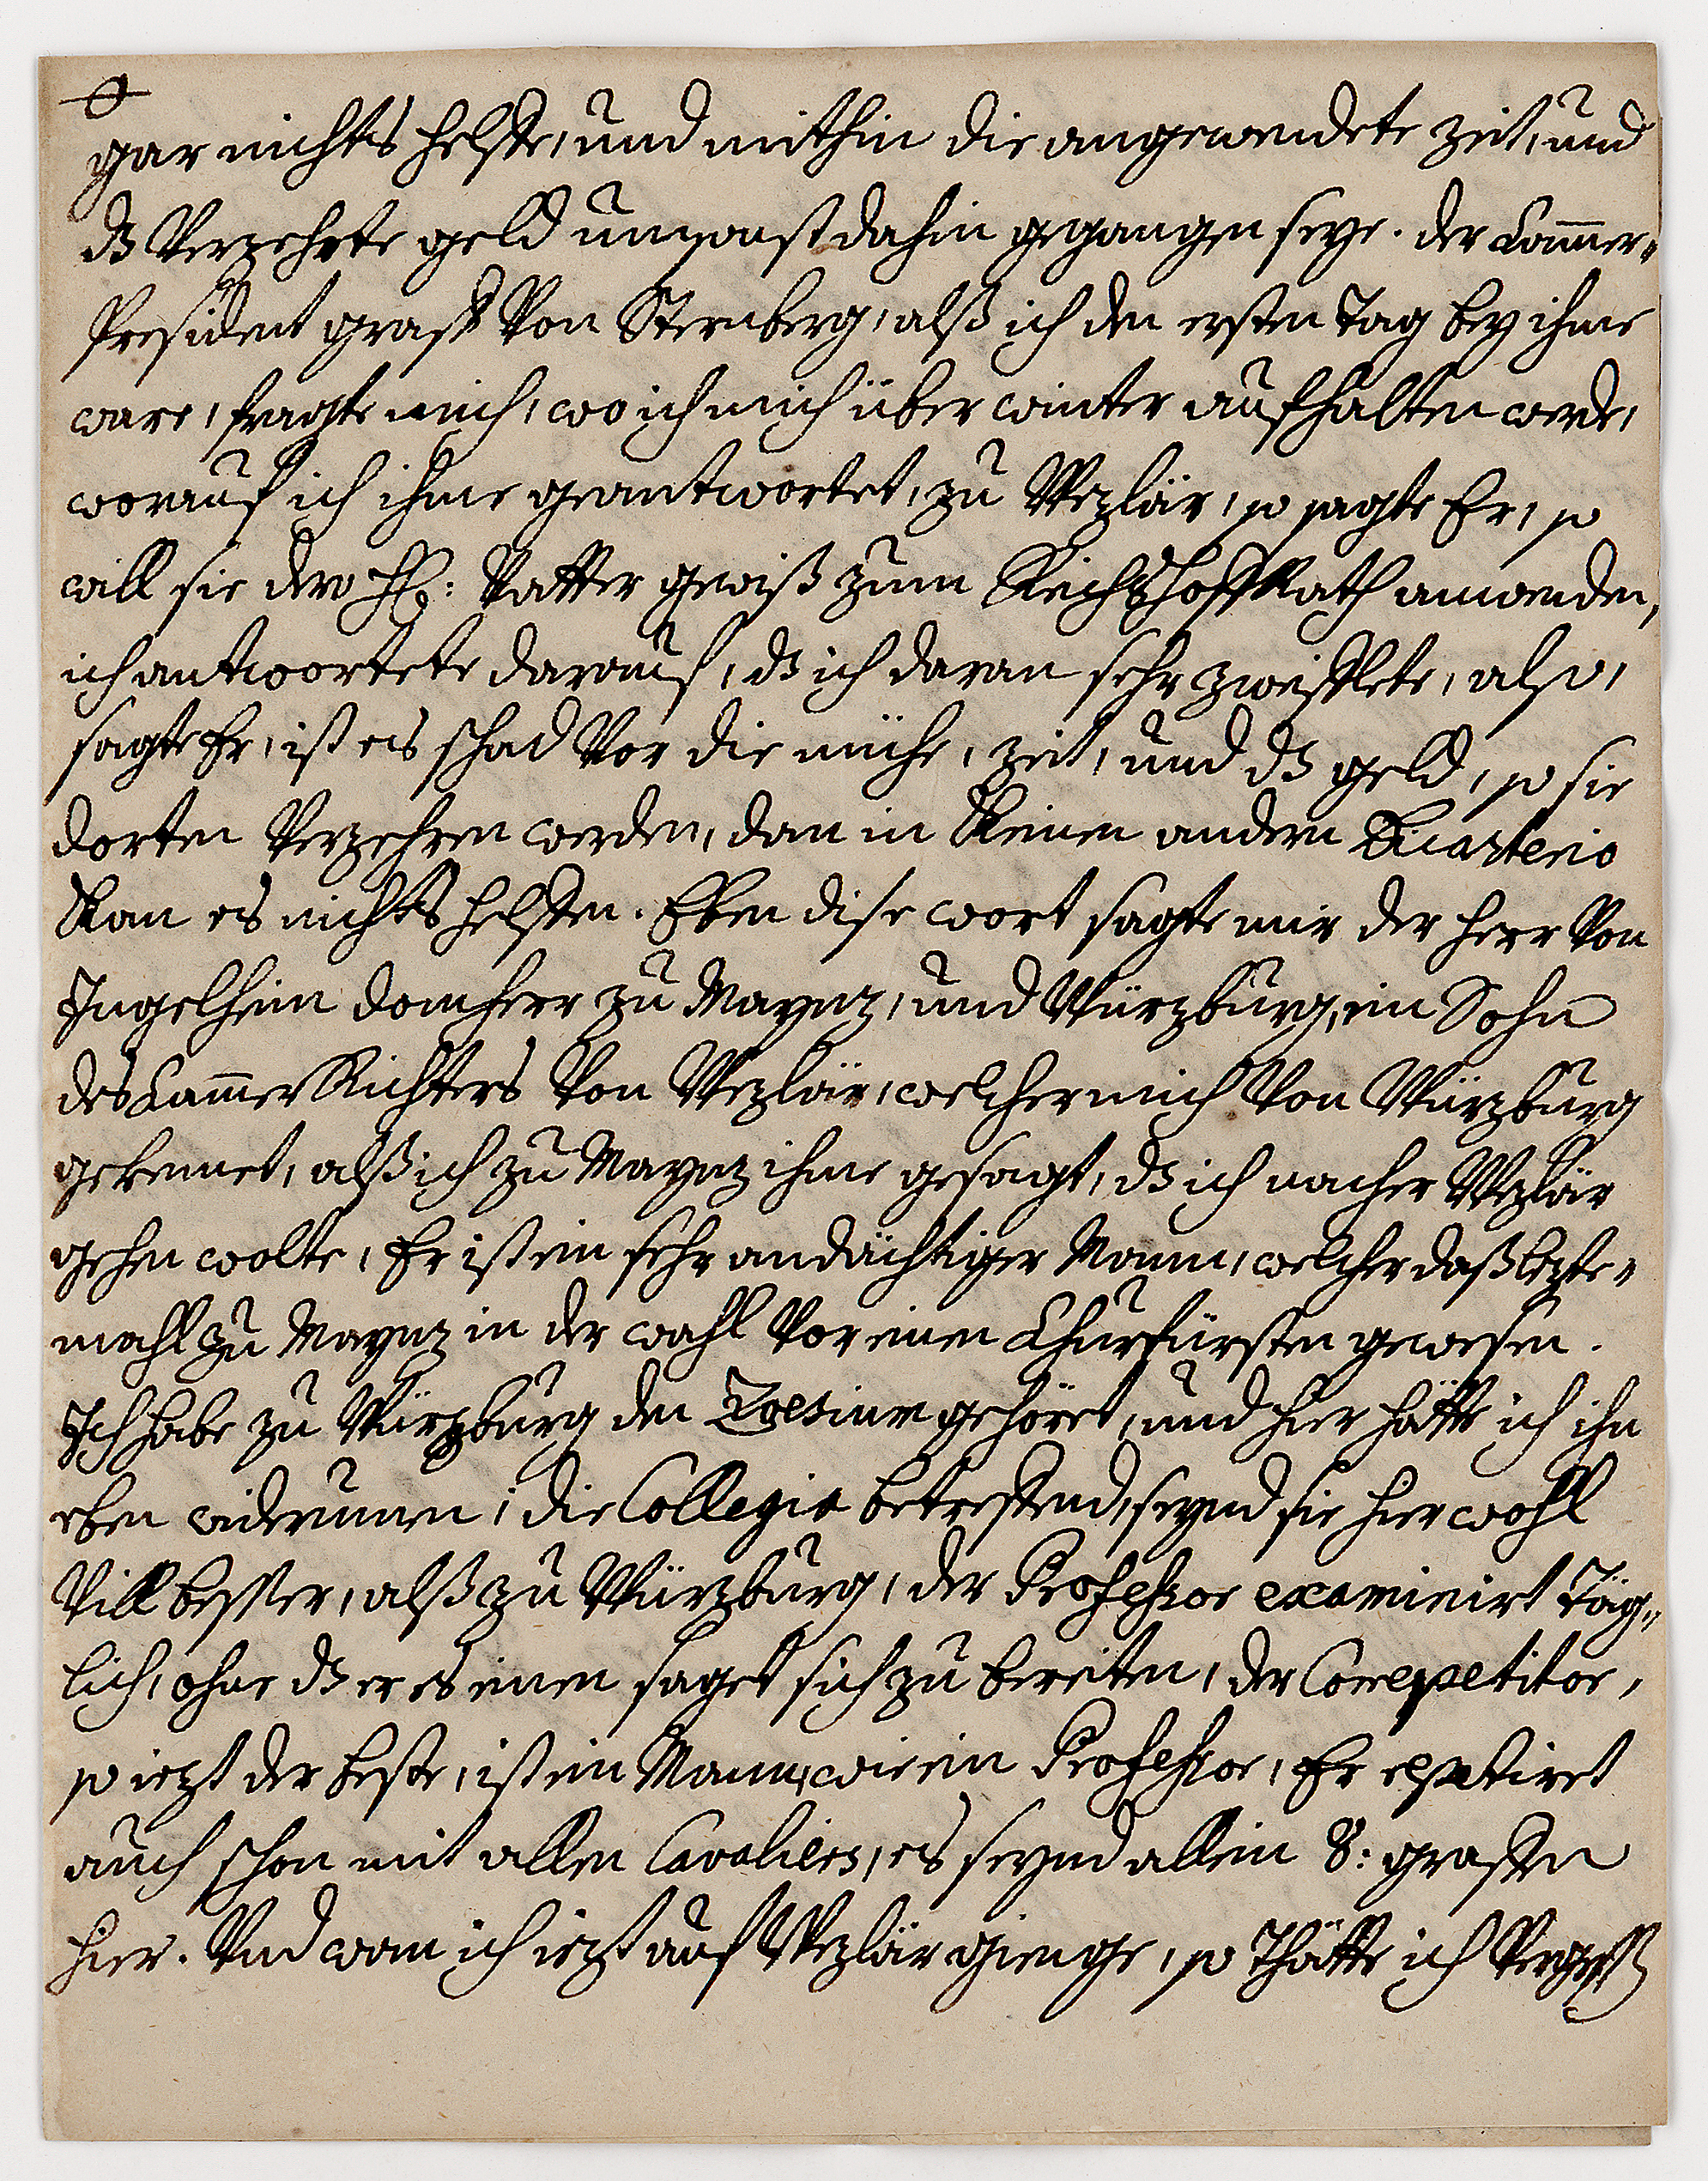 gar nichts helffe, und mithin die angewendete zeit, und
dß Verzehrte geld umsonst dahin gegangen seye. der Cam̄er-
President graff Von Sternberg, alß ich den ersten Tag bey ihme
ware, fragte mich, wo ich mich über winter aufhalten werde,
worauf ich ihme geantwortet, zu Wezlar, so sagte Er, so
will sie dero H: Vatter gewiß zum ReichsHoffRath anwenden,
ich antwortete darauf, dß ich daran sehr zweifflete, also,
sagte Er, ist es schad Vor die mühe, zeit, und dß geld, so sie
dorten Verzehren werden, dan in Keinen andern Dicasterio
Kan es nichts helffen. Eben dise wort sagte mir der Herr Von
Ingelheim domherr zu Maynz, und Würzburg, ein Sohn
des Cam̄erRichters Von Wezlar, welcher mich Von Würzburg
gekennet, alß ich zu Maynz ihme gesagt, dß ich nacher Wezlar
gehen wolte, Er ist ein sehr andächtiger Mann, welcher daß lezte-
mahl zu Maynz in der wahl Vor einen Churfürsten gewesen.
Ich habe zu Würzburg den Zoesium gehöret, und hier hätte ich ihn
eben widerumen, die Collegia betreffend, seynd sie hier wohl
Vill besser, alß zu Würzburg, der Professor examinirt Täg-
lich, ohne dß er es einen saget sich zu bereiten, der Correpetitor,
so iezt der beste, ist ein Mann, wie ein Professor, Er repetiret
auch schon mit allen Cavaliers, es seynd allein 8: graffen
hier. Und wan ich iezt auf Wezlar gienge, so Thätte ich